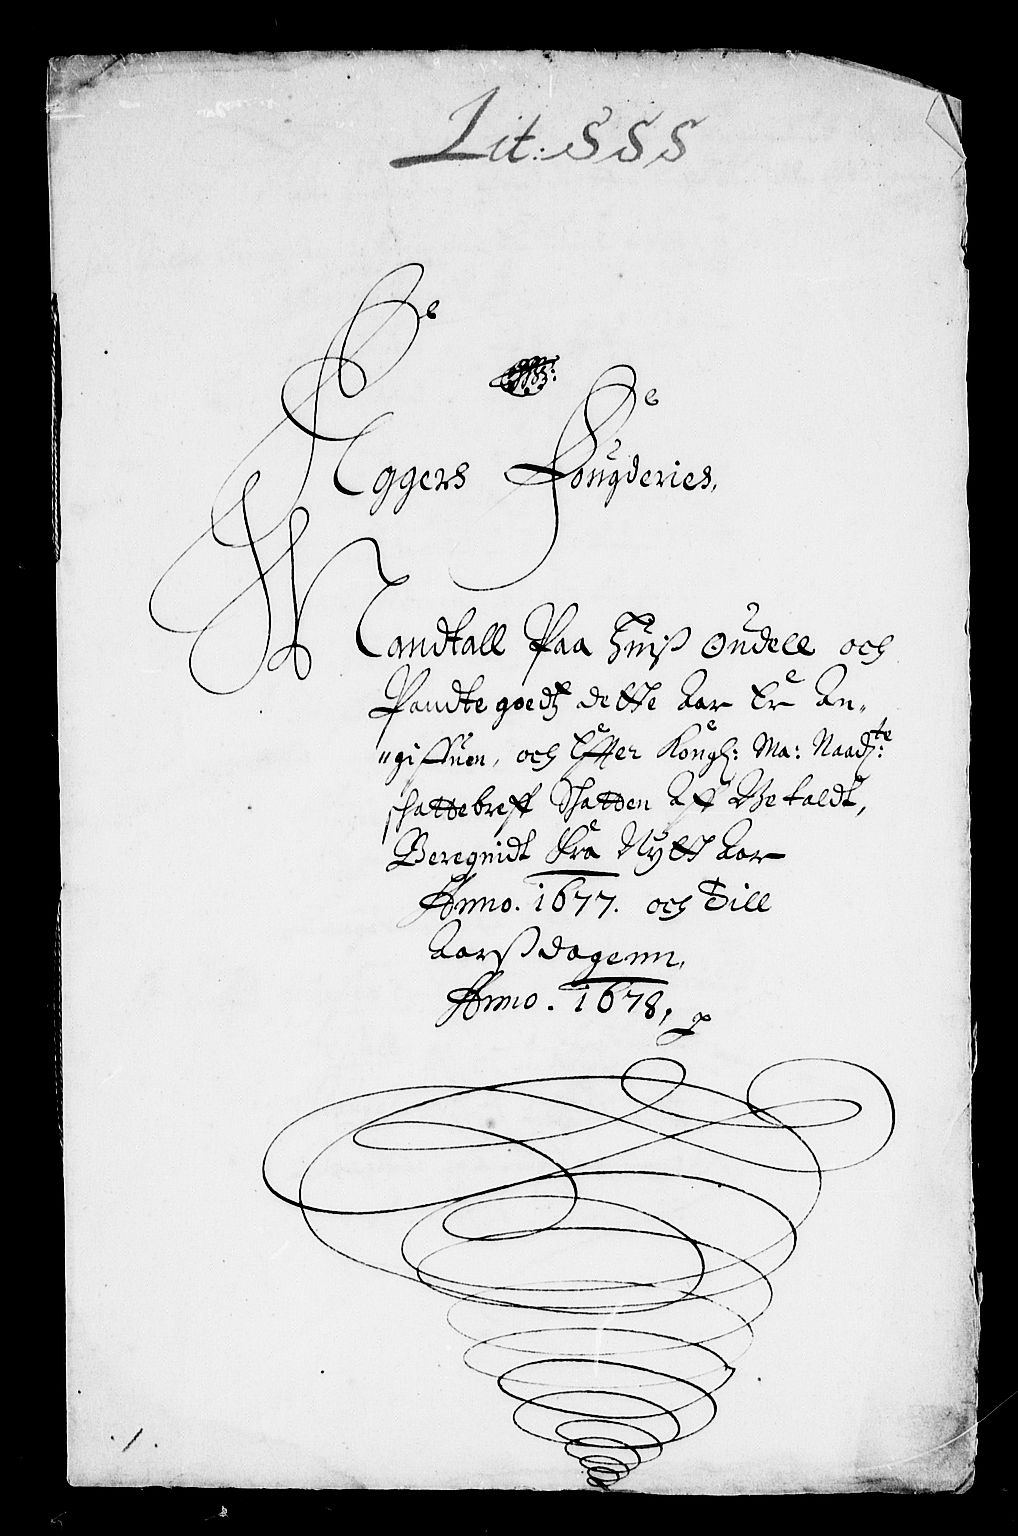 Lit: SSS
Eggers Fougderies,
Mandtall Paa huis Oudell och
Pandtegoedtz dette Aar Er An-
"gifuen, och Effter Kongl: Ma: Naadste:
skattebreff Skatten Aff Betaldt,
Beregnidt Fra Nytt Aar
Anno. 1677. och Till
Aarssdagenn,
Anno. 1678,
1.